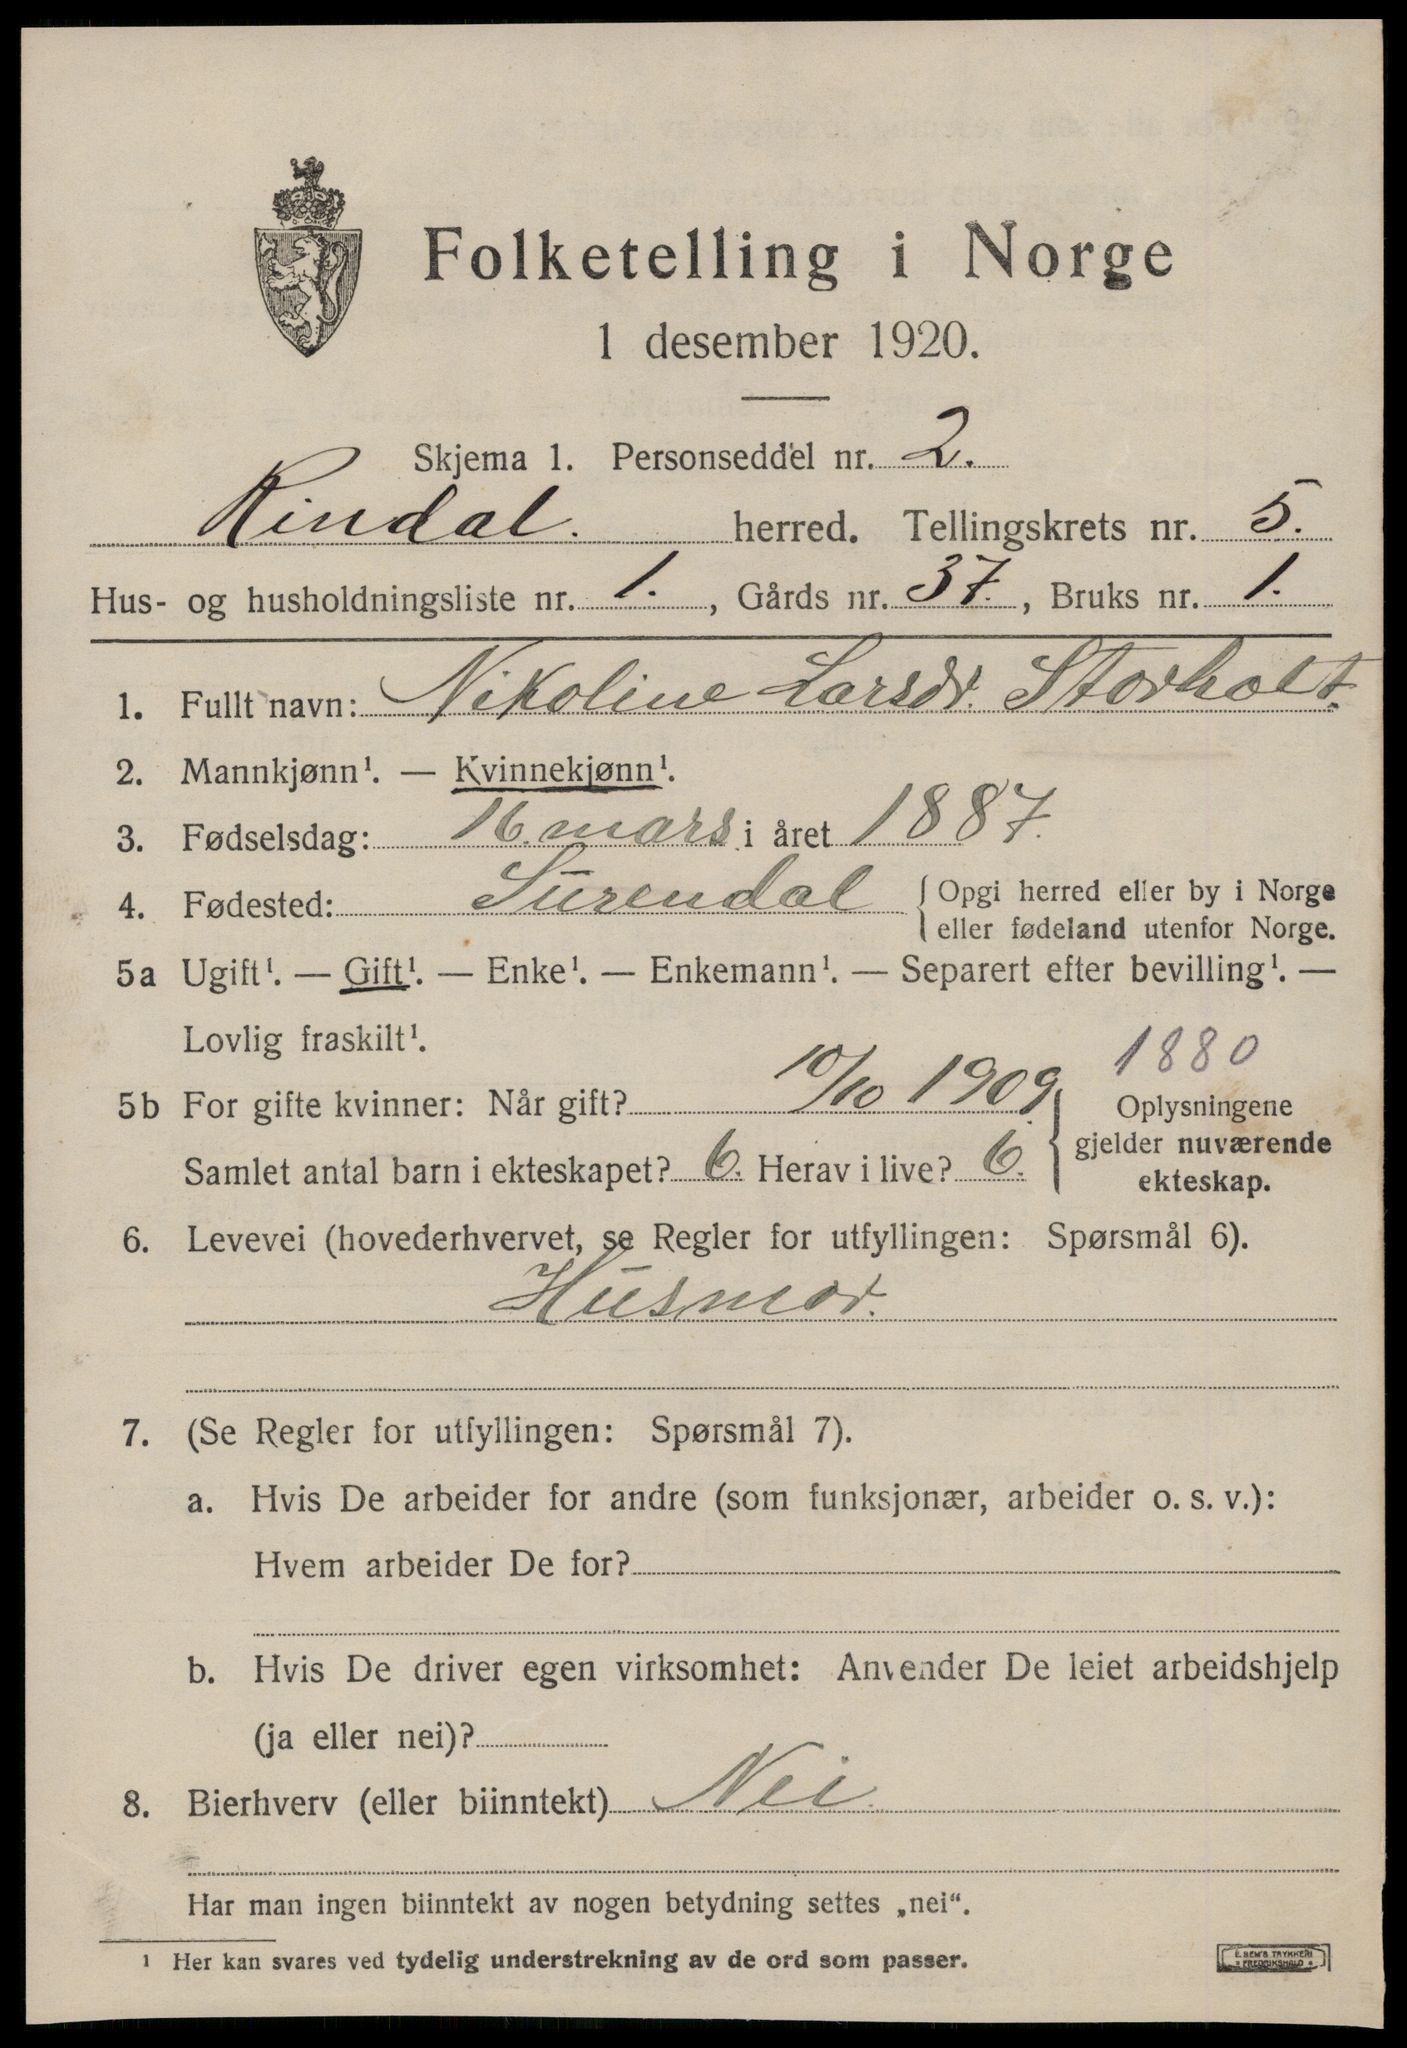 Folketelling i Norge
1 desember 1920.
Skjema 1. Personseddel nr. 2.
Rindal. herred. Tellingskrets nr. 5.
Hus- og husholdningsliste nr. 1., Gårds nr. 37., Bruks nr. 1.
1. Fullt navn: Nikoline Larsdr. Storholt.
2. Mannkjønn¹. — Kvinnekjønn¹.
3. Fødselsdag: 16. mars i året 1887.
4. Fødested: Surendal { Opgi herred eller by i Norge
eller fødeland utenfor Norge.
5a Ugift¹. — Gift¹. — Enke¹. — Enkemann¹. — Separert efter bevilling¹. —
Lovlig fraskilt¹.
1880
5b For gifte kvinner: Når gift? 10/10 1909. { Oplysningene
gjelder nuværende
Samlet antal barn i ekteskapet? 6. Herav i live? 6.
ekteskap.
6. Levevei (hovederhvervet, se Regler for utfyllingen: Spørsmål 6).
Husmor.
7. (Se Regler for utfyllingen: Spørsmål 7).
a. Hvis De arbeider for andre (som funksjonær, arbeider o. s. v.):
Hvem arbeider De for?
b. Hvis De driver egen virksomhet: Anvender De leiet arbeidshjelp
(ja eller nei)?
8. Bierhverv (eller biinntekt) Nei.
Har man ingen biinntekt av nogen betydning settes „nei“.
¹ Her kan svares ved tydelig understrekning av de ord som passer.
E. SEM'S TRYKKERI
* FREDRIKSHALD *